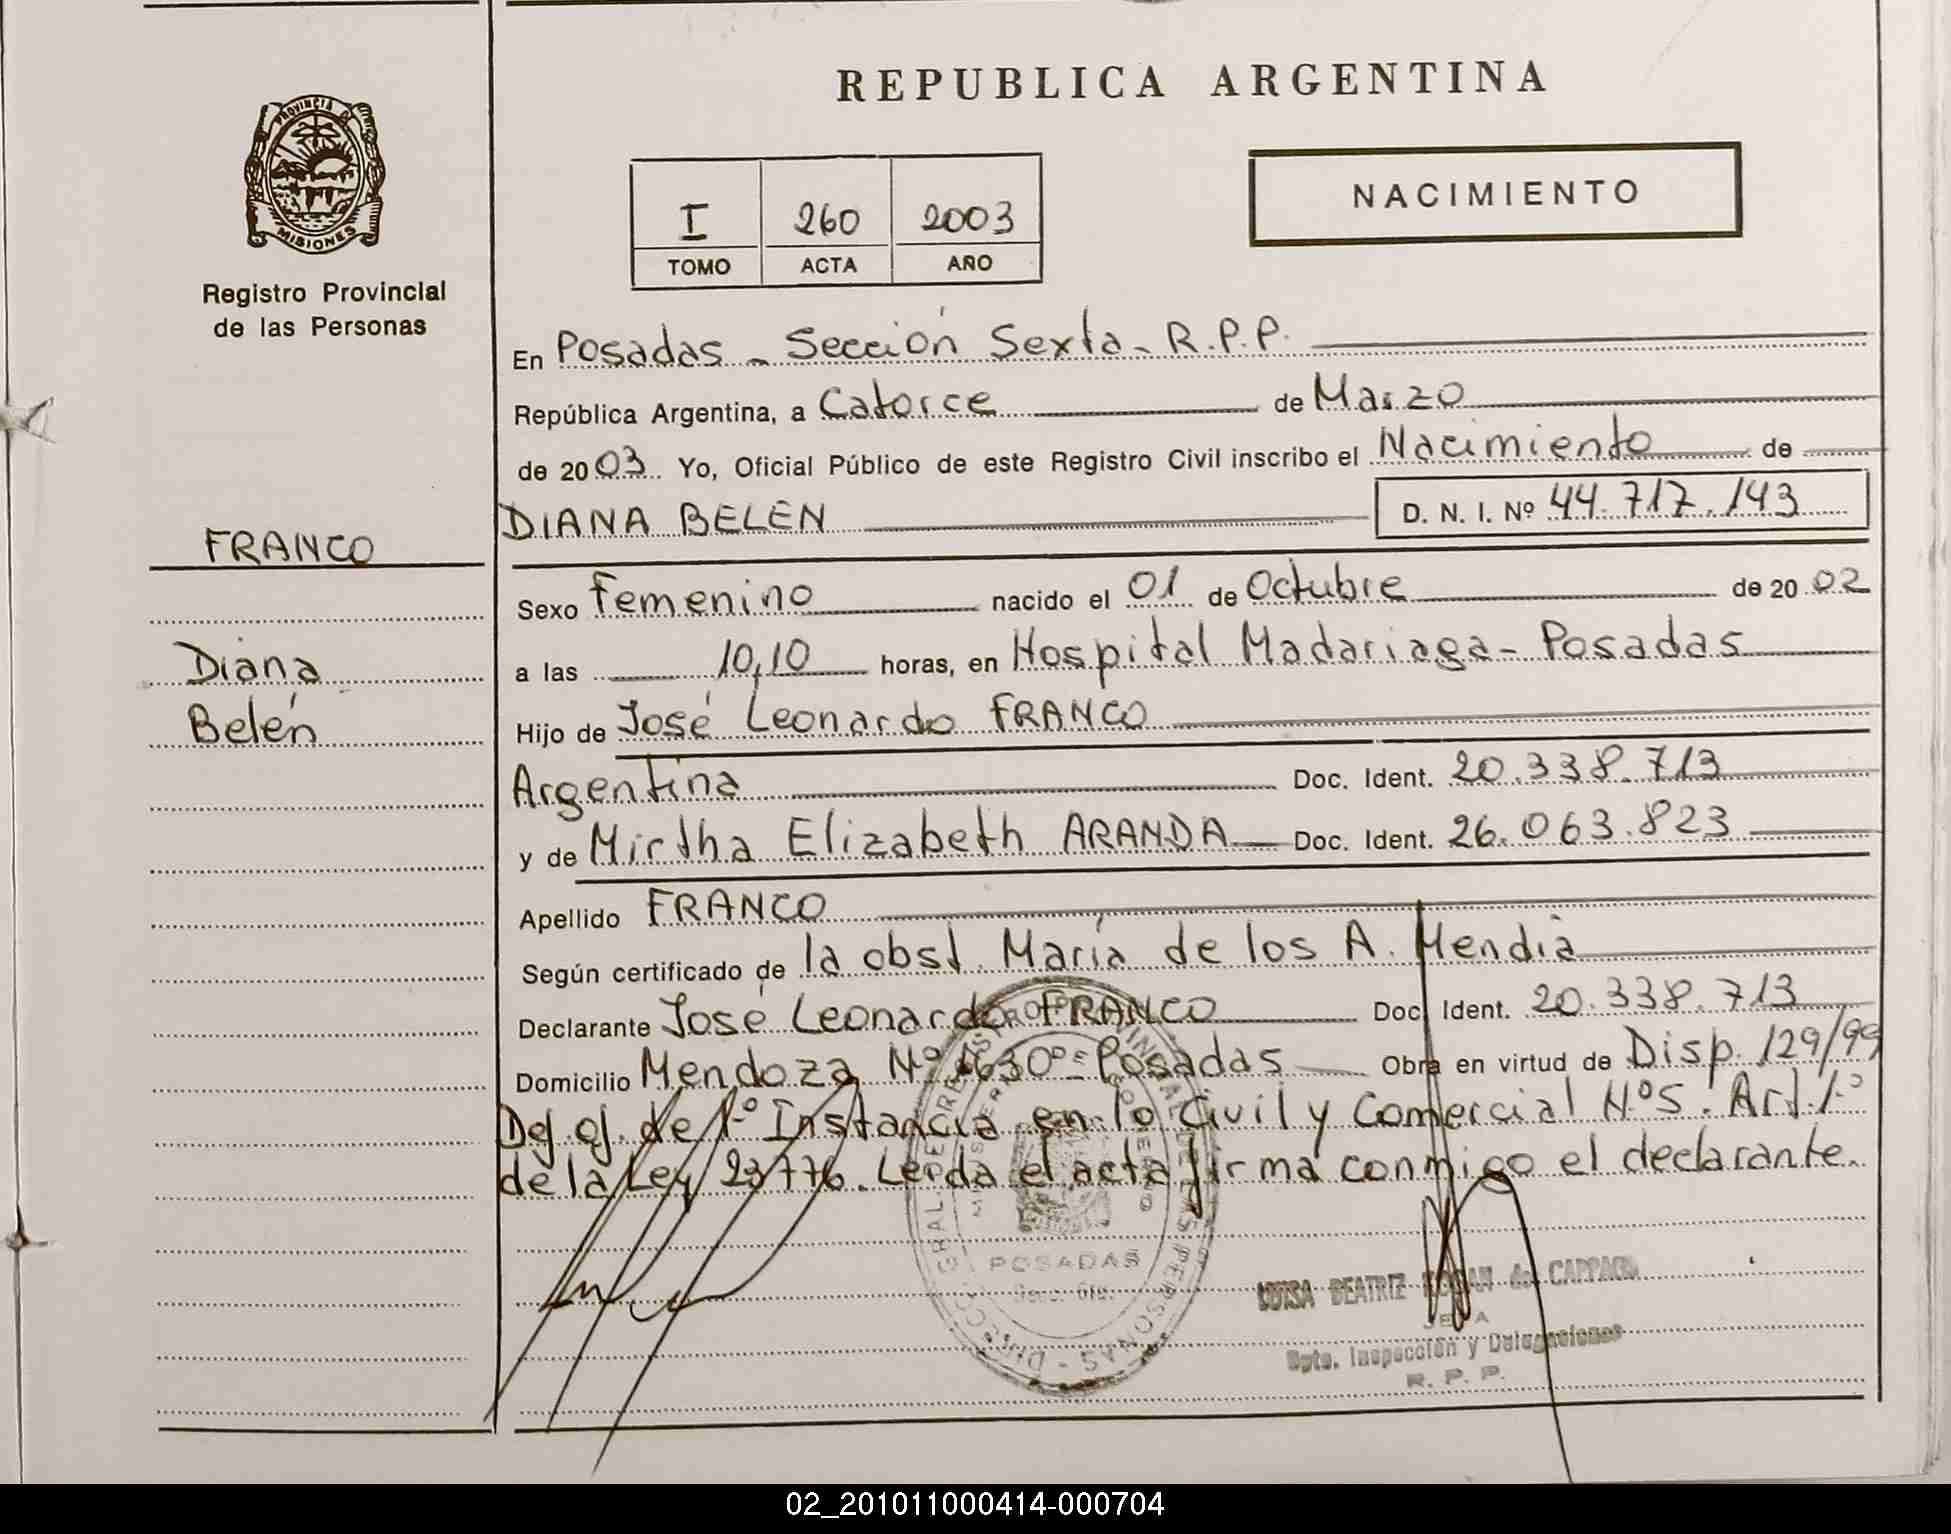 REPUBLICA ARGENTINA
PROVINCIA D
MISIONES
Registro Provincial
de las Personas
NACIMIENTO
I 260 2003
TOMO ACTA AÑO
En Posadas - Sección Sexta - R.P.P.
República Argentina, a Catorce de Marzo
de 2003. Yo, Oficial Público de este Registro Civil inscribo el Nacimiento de
DIANA BELEN D. N. I. Nº 44.717.143
FRANCO
Diana
Belén
Sexo Femenino nacido el 01 de Octubre de 2002
a las 10,10 horas, en Hospital Madariaga - Posadas
Hijo de José Leonardo FRANCO
Argentina Doc. Ident. 20.338.713
y de Mirtha Elizabeth ARANDA Doc. Ident. 26.063.823
Apellido FRANCO
Según certificado de la obst. María de los A. Mendia
Declarante José Leonardo FRANCO Doc. Ident. 20.338.713
Domicilio Mendoza Nº 1630 - Posadas Obra en virtud de Disp. 129/99
de 1º Instancia en lo Civil y Comercial Nº 5. Art. 1º
de la Ley 23776. Leída el acta firma conmigo el declarante.
POSADAS
LUISA BEATRIZ de
JEFA
Dpto. Inspección y Delegaciones
R. P. P.
02_201011000414-000704